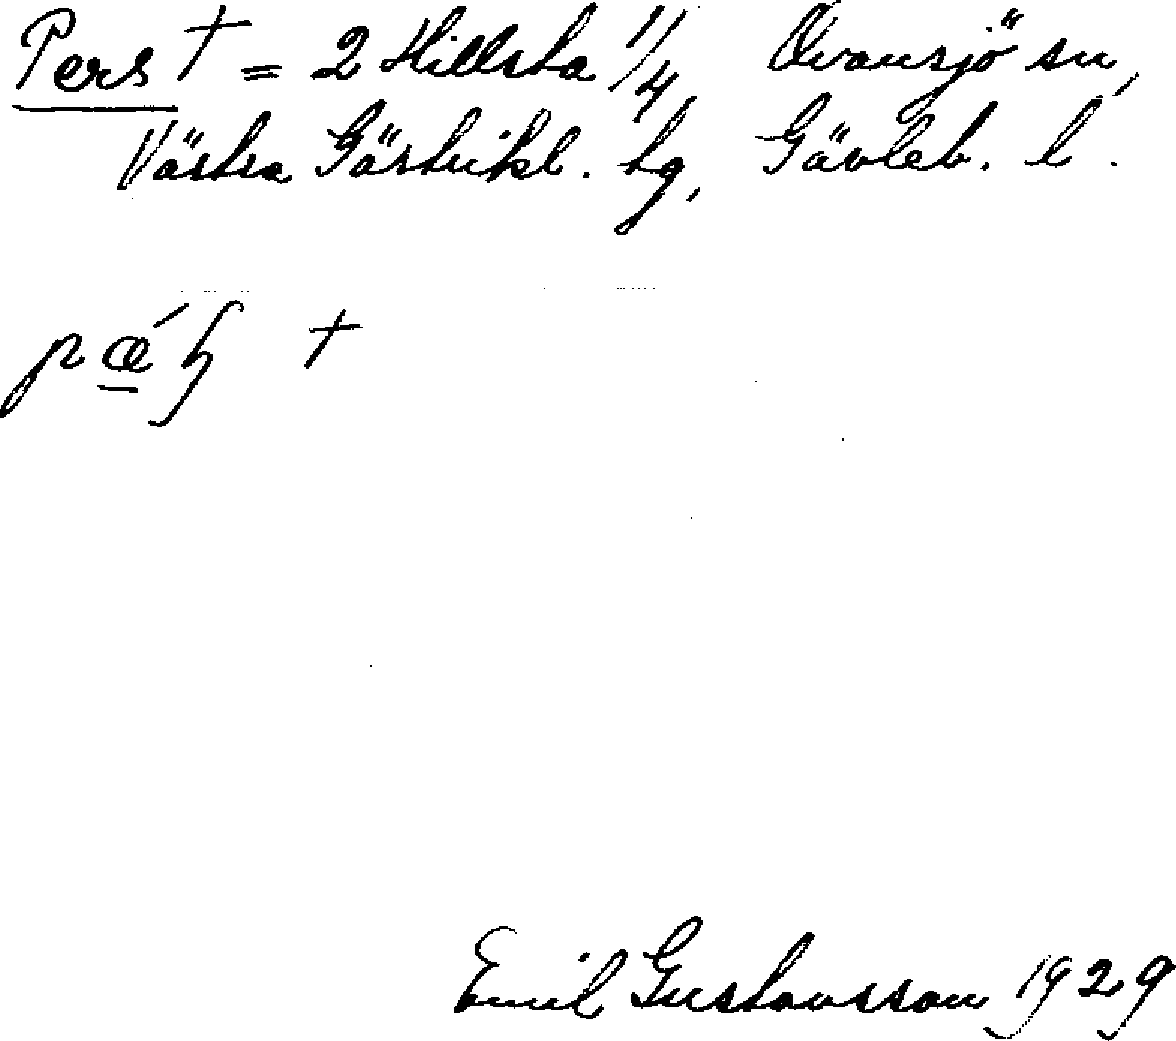 Pers † = 2 Hillsta 1/4, Ovansjö sn,
Västra Gästrikl. tg, Gävleb. l.
†
Emil Gustavsson 1929